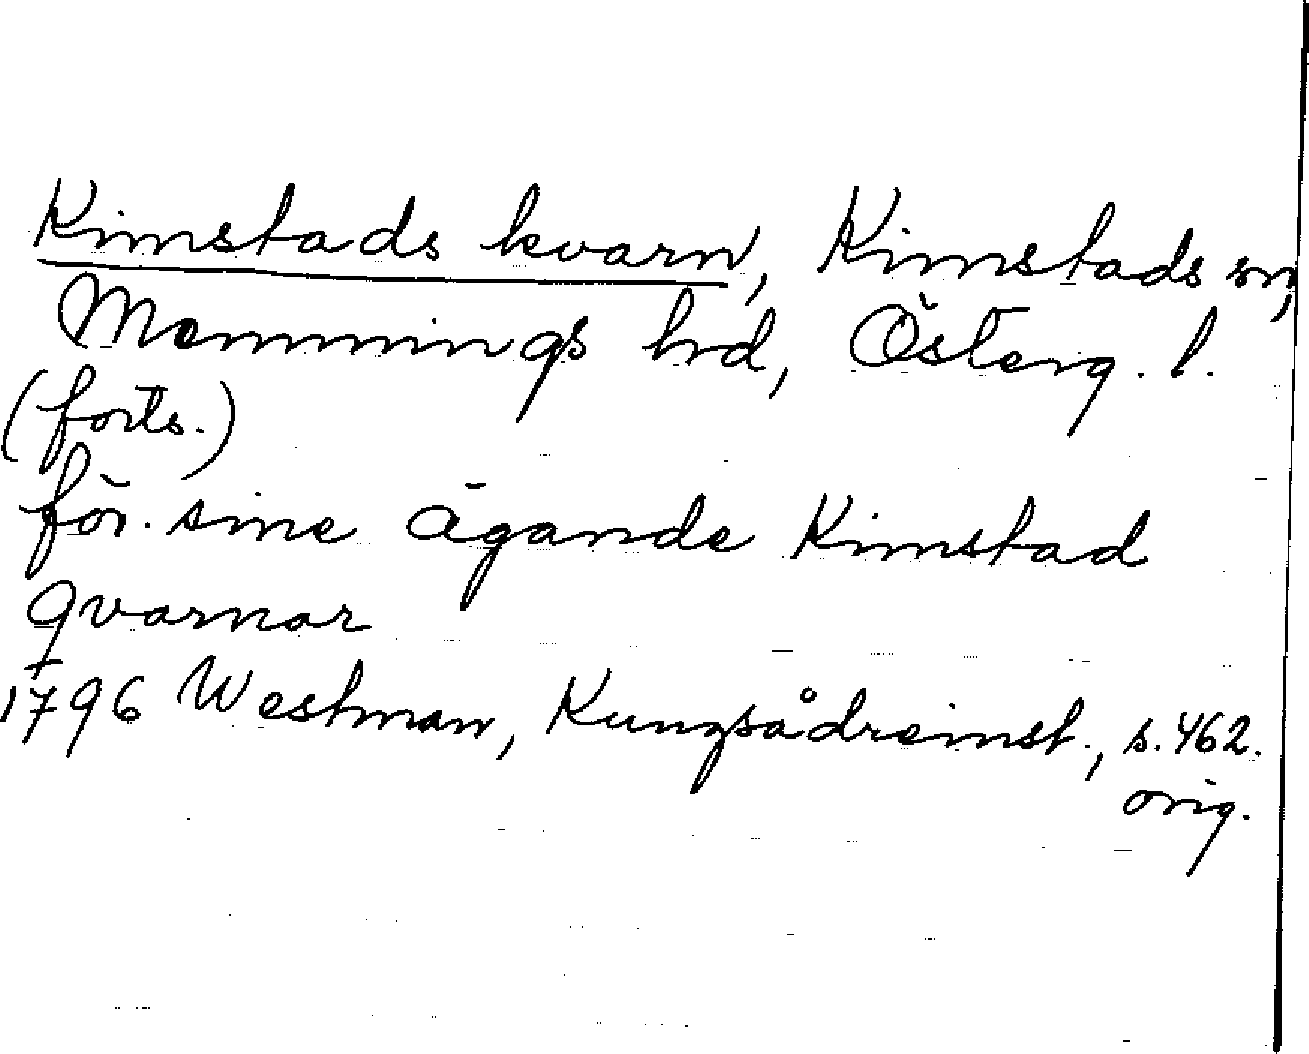 Kimstads kvarn, Kimstads sn,
Memmings hrd, Österg. l.
(forts.)
för. sine ägande Kimstad
qvarnar
1796 Westman, Kungsådreinst., s. 462.
orig.